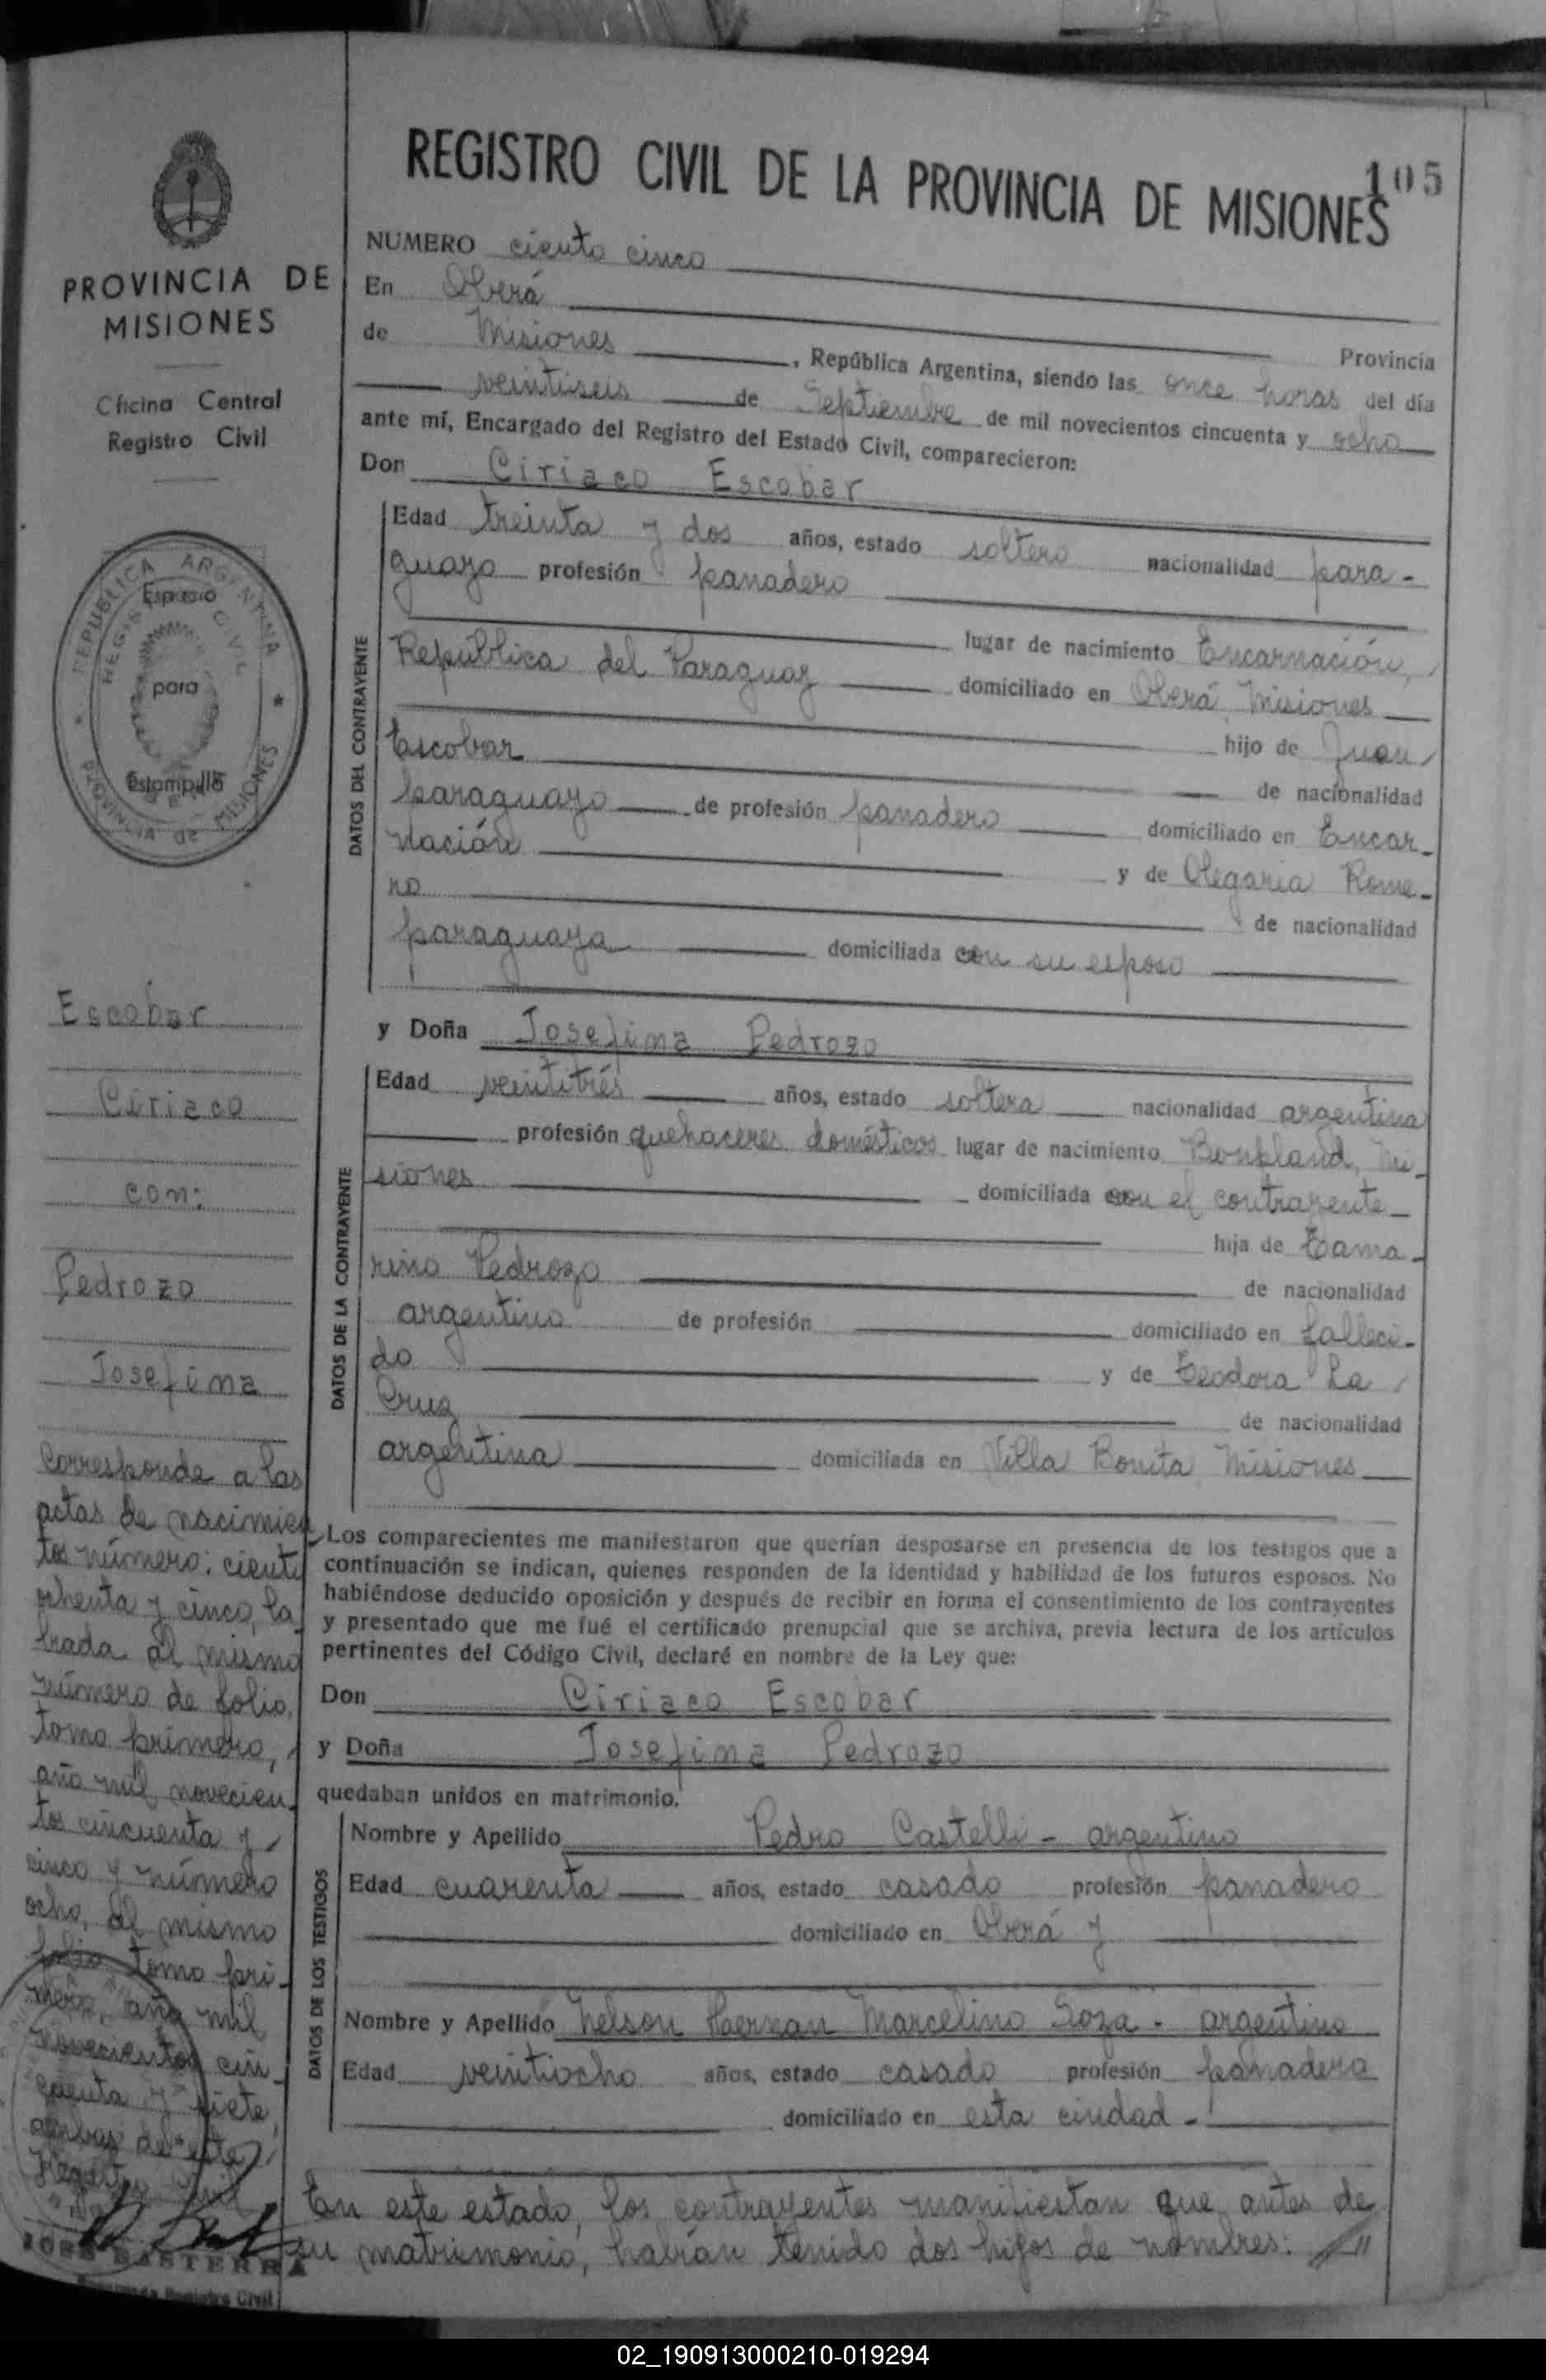 105
REGISTRO CIVIL DE LA PROVINCIA DE MISIONES
PROVINCIA DE
MISIONES
Oficina Central
Registro Civil
REPUBLICA ARGENTINA
REGISTRO CIVIL
PROVINCIA DE MISIONES
Espacio
para
Estampilla
Escobar
Ciriaco
con:
Pedrozo
Josefina
Corresponde a las
actas de nacimien
tos número: ciento
ochenta y cinco, la
brada al mismo
número de folio,
tomo primero,
año mil novecien-
tos cincuenta y
cinco y número
ocho, al mismo
folio, tomo pri-
mero, año mil
novecientos cin-
cuenta y siete,
ambas de este
Registro Civil
JOSE BASTERRA
Encargado Registro Civil
NUMERO ciento cinco
En Oberá Provincia
de Misiones, República Argentina, siendo las once horas del día
veintiseis de Septiembre de mil novecientos cincuenta y ocho
ante mí, Encargado del Registro del Estado Civil, comparecieron:
Don Ciriaco Escobar
DATOS DEL CONTRAYENTE
Edad treinta y dos años, estado soltero nacionalidad para-
guayo profesión panadero
lugar de nacimiento Encarnación,
República del Paraguay domiciliado en Oberá, Misiones
hijo de Juan
Escobar de nacionalidad
paraguayo de profesión panadero domiciliado en Encar-
nación y de Olegaria Rome-
ro de nacionalidad
paraguaya domiciliada con su esposo
y Doña Josefina Pedrozo
DATOS DE LA CONTRAYENTE
Edad veintitrés años, estado soltera nacionalidad argentina
profesión quehaceres domésticos lugar de nacimiento Bonpland, Mi-
siones domiciliada con el contrayente
hija de Tama-
rino Pedrozo de nacionalidad
argentino de profesión domiciliado en falleci-
do y de Teodora La
Cruz de nacionalidad
argentina domiciliada en Villa Bonita, Misiones
Los comparecientes me manifestaron que querían desposarse en presencia de los testigos que a
continuación se indican, quienes responden de la identidad y habilidad de los futuros esposos. No
habiéndose deducido oposición y después de recibir en forma el consentimiento de los contrayentes
y presentado que me fué el certificado prenupcial que se archiva, previa lectura de los artículos
pertinentes del Código Civil, declaré en nombre de la Ley que:
Don Ciriaco Escobar
y Doña Josefina Pedrozo
quedaban unidos en matrimonio.
DATOS DE LOS TESTIGOS
Nombre y Apellido Pedro Castelli - argentino
Edad cuarenta años, estado casado profesión panadero
domiciliado en Oberá y
Nombre y Apellido Nelson Marcelino Soza - argentino
Edad veintiocho años, estado casado profesión panadero
domiciliado en esta ciudad -
En este estado, los contrayentes manifiestan que antes de
su matrimonio, habían tenido dos hijos de nombres: //
02_190913000210-019294